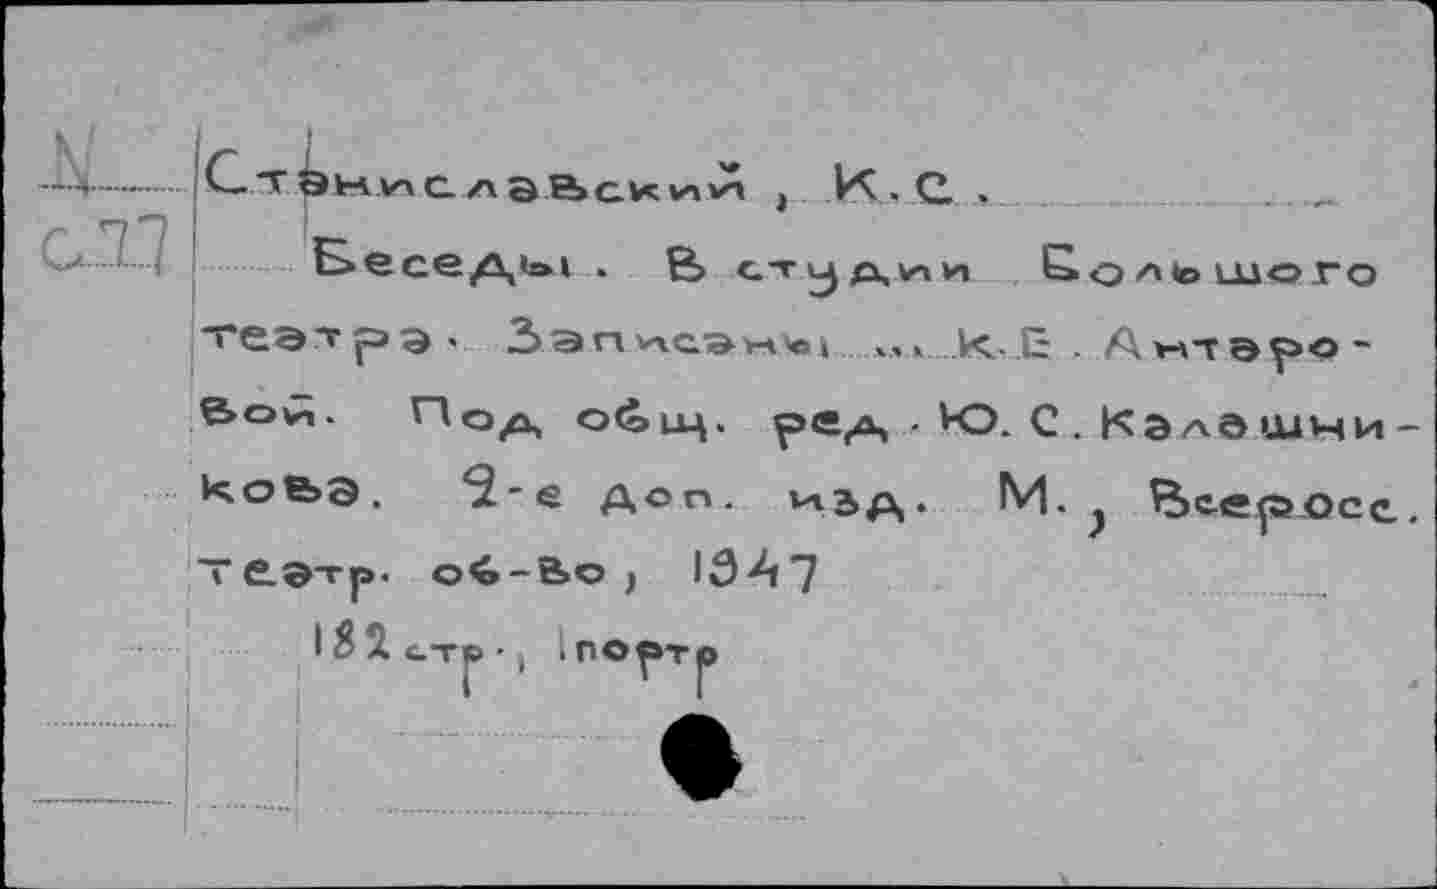 N Станиславский, К.С.
С77 Беседы. В студии Большого
театра. Записаны ... К.Е. Антаро-
вой. Под общ. ред. Ю.С. Калашни-
кова. 2-е доп. изд. М., Всеросс.
театр. об-во, 1947
182 стр., 1 портр